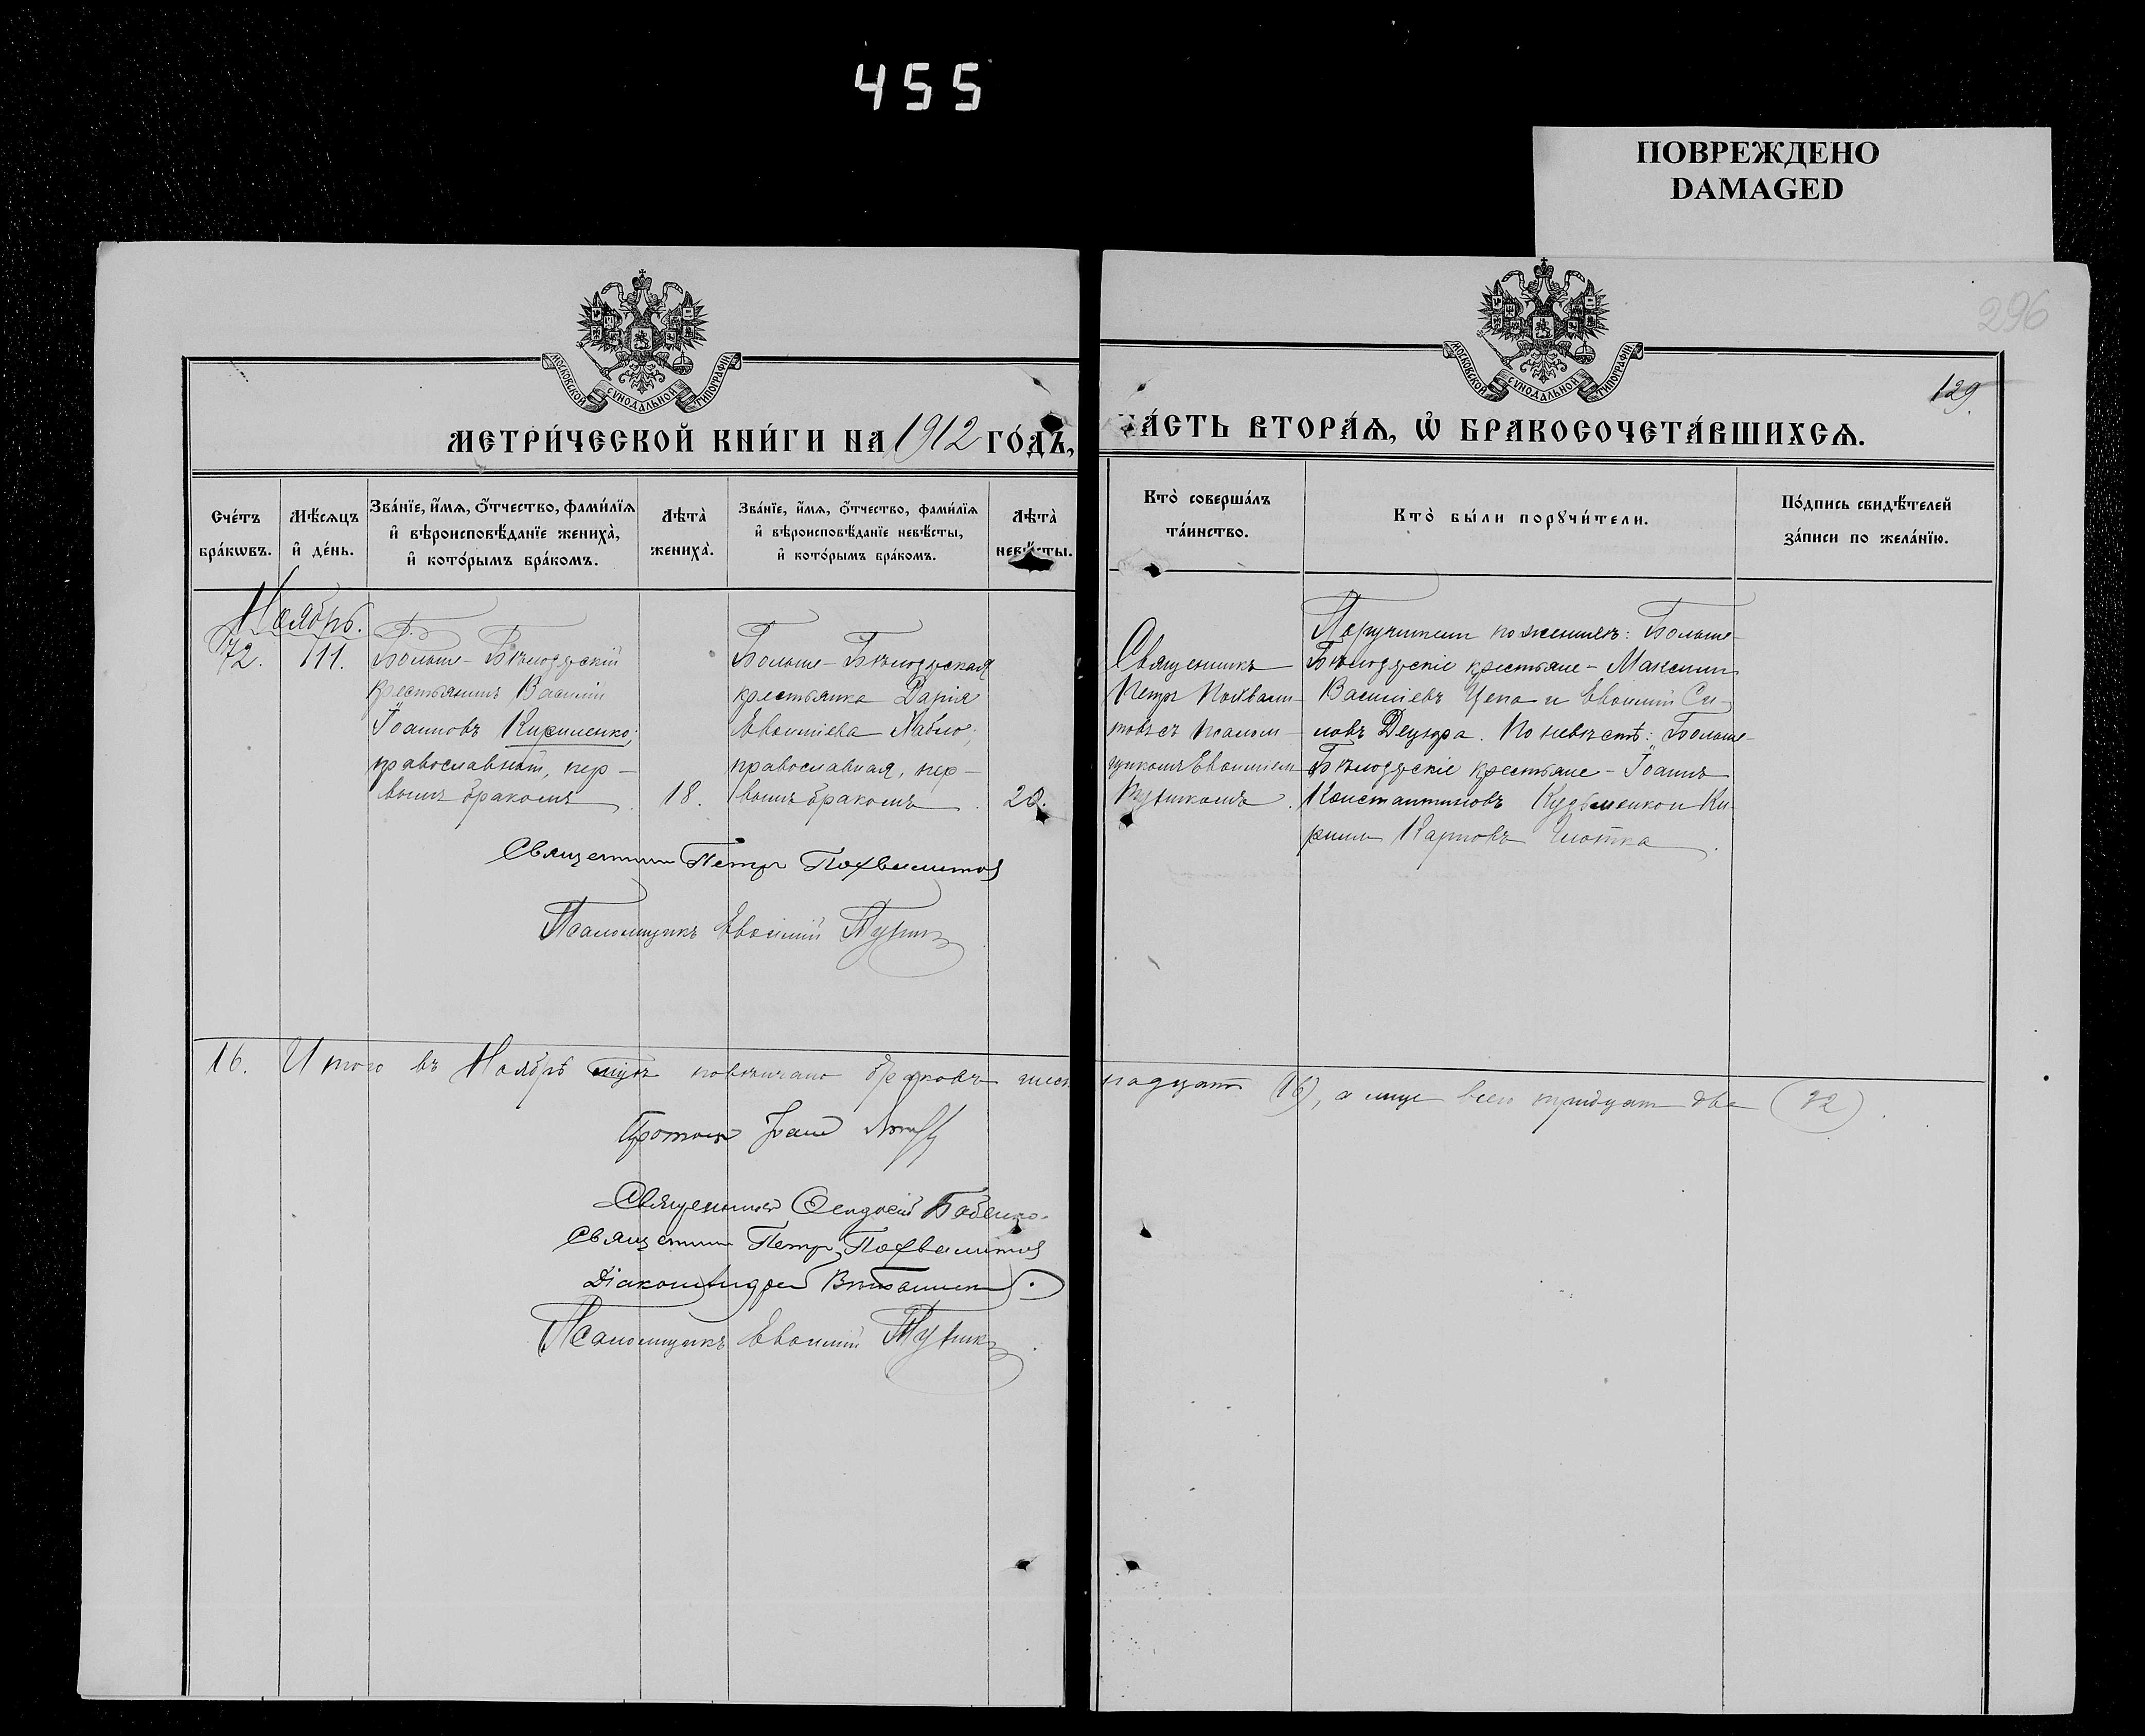 455
ПОВРЕЖДЕНО
DAMAGED
296
129.
МОСКОВСКОЙ СѴНОДАЛЬНОЙ ТИПОГРАФІИ
МОСКОВСКОЙ СѴНОДАЛЬНОЙ ТИПОГРАФІИ
МЕТРИ́ЧЕСКОЙ КНИ́ГИ НА 1912 ГО́ДЪ,
ЧА́СТЬ ВТОРА́Ѧ, Ѡ҆ БРАКОСОЧЕТА́ВШИХСѦ.
Сче́тъ
бра́кѡвъ.
Мѣ́сѧцъ
и҆ де́нь.
Зва́нїе, и҆́мѧ, ѻ҆́тчество, фами́лїѧ
и҆ вѣроисповѣ́данїе жениха̀,
и҆ кото́рымъ бра́комъ.
Лѣта̀
жениха̀.
Зва́нїе, и҆́мѧ, ѻ҆́тчество, фами́лїѧ
и҆ вѣроисповѣ́данїе невѣ́сты,
и҆ кото́рымъ бра́комъ.
Лѣта̀
невѣ́сты.
Кто̀ соверша́лъ
та́инство.
Кто̀ бы́ли порꙋчи́тели.
По́дпись свидѣ́телей
за́писи по жела́нїю.
Ноябрь.
72.
11.
Больше-Бѣлозерскій
крестьянинъ Василій
Іоанновъ Кириленко;
православный, пер-
вымъ бракомъ.
18.
Больше-Бѣлозерская
крестьянка Дарія
Евѳиміева
православная, пер-
вымъ бракомъ.
20.
Священникъ
Петръ Похвали-
товъ съ псалом-
щикомъ Евѳиміемъ
Поручители по женихѣ: Больше-
Бѣлозерскіе крестьяне - Максимъ
Васильевъ Цепа и Евѳимій Си-
мовъ Децюра. По невѣстѣ: Больше-
Бѣлозерскіе крестьяне - Іоаннъ
Константиновъ Кузьменко и Ки-
риллъ Карповъ
Священникъ Петръ Похвалитовъ
Псаломщикъ Евѳимій
16. Итого въ Ноябрѣ мцѣ повѣнчано браковъ шест
надцать (16), а лицъ всего тридцать два (32).
Протоіерей Іоаннъ
Священникъ Ѳеодосій Бабенко.
Священникъ Петръ Похвалитовъ
Діаконъ Андрей
Псаломщикъ Евѳимій